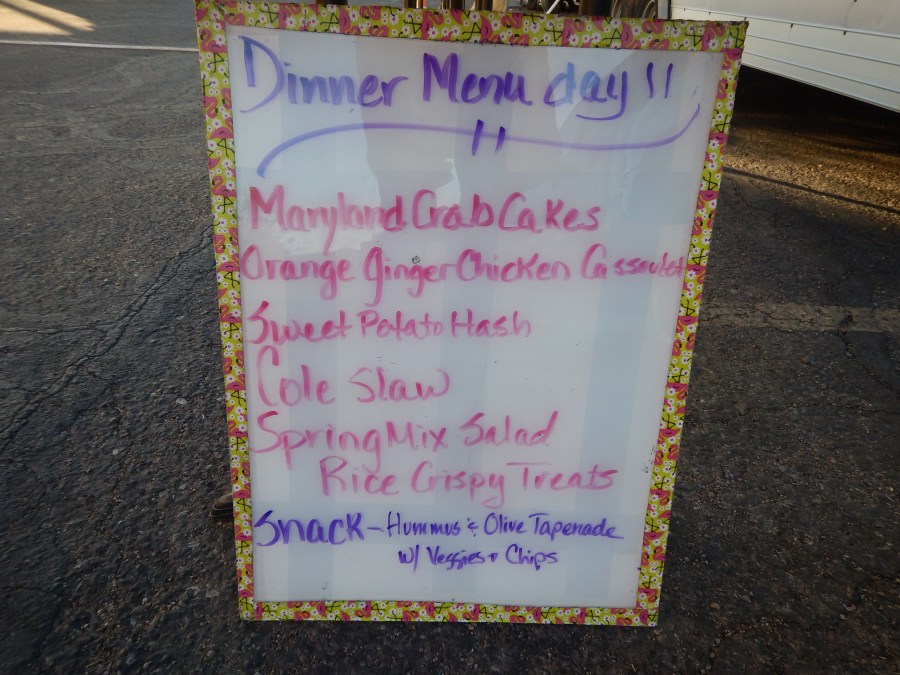 Dinner Menu day 11
Maryland Crab Cakes
Orange Ginger Chicken Cassoulet
Sweet Potato Hash
Cole Slaw
Spring Mix Salad
Rice Crispy Treats
Snack - Hummus & Olive Tapenade
w/ Veggies + Chips